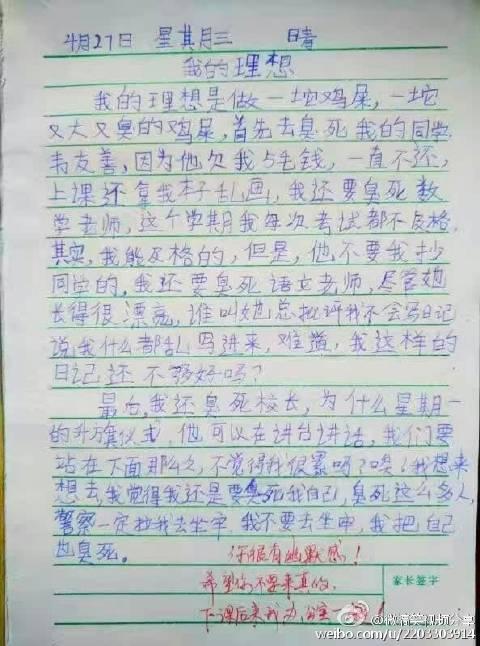 4月27日 星其月三 晴
我的理想
我的理想是做一坨鸡屎，一坨
又大又臭的鸡屎，首先去臭死我的同学
韦友善，因为他欠我5毛钱，一直不还，
上课还拿我本子乱画，我还要臭死数
学老师，这个学期我每次考试都不及格，
其实，我能及格的，但是，他不要我抄
同位的，我还要臭死语文老师，尽管她
长得很漂亮，谁叫她总批评我不会写日记
说我什么都乱写进来，难道，我这样的
日记还不够好吗？
最后，我还臭死校长，为什么星期一
的升旗仪式，他可以在讲台讲话，我们要
站在下面那么久，不觉得我很累吗？唉！我想来
想去，我觉得我还是要臭死我自己，臭死这么多人，
警察一定拉我去坐牢，我不要去坐牢，我把自己
也臭死。
你很有幽默感！
希望你不要来真的。
下课后来我办公室
家长签字
@微博搞笑视频分享
weibo.com/u/2203303914